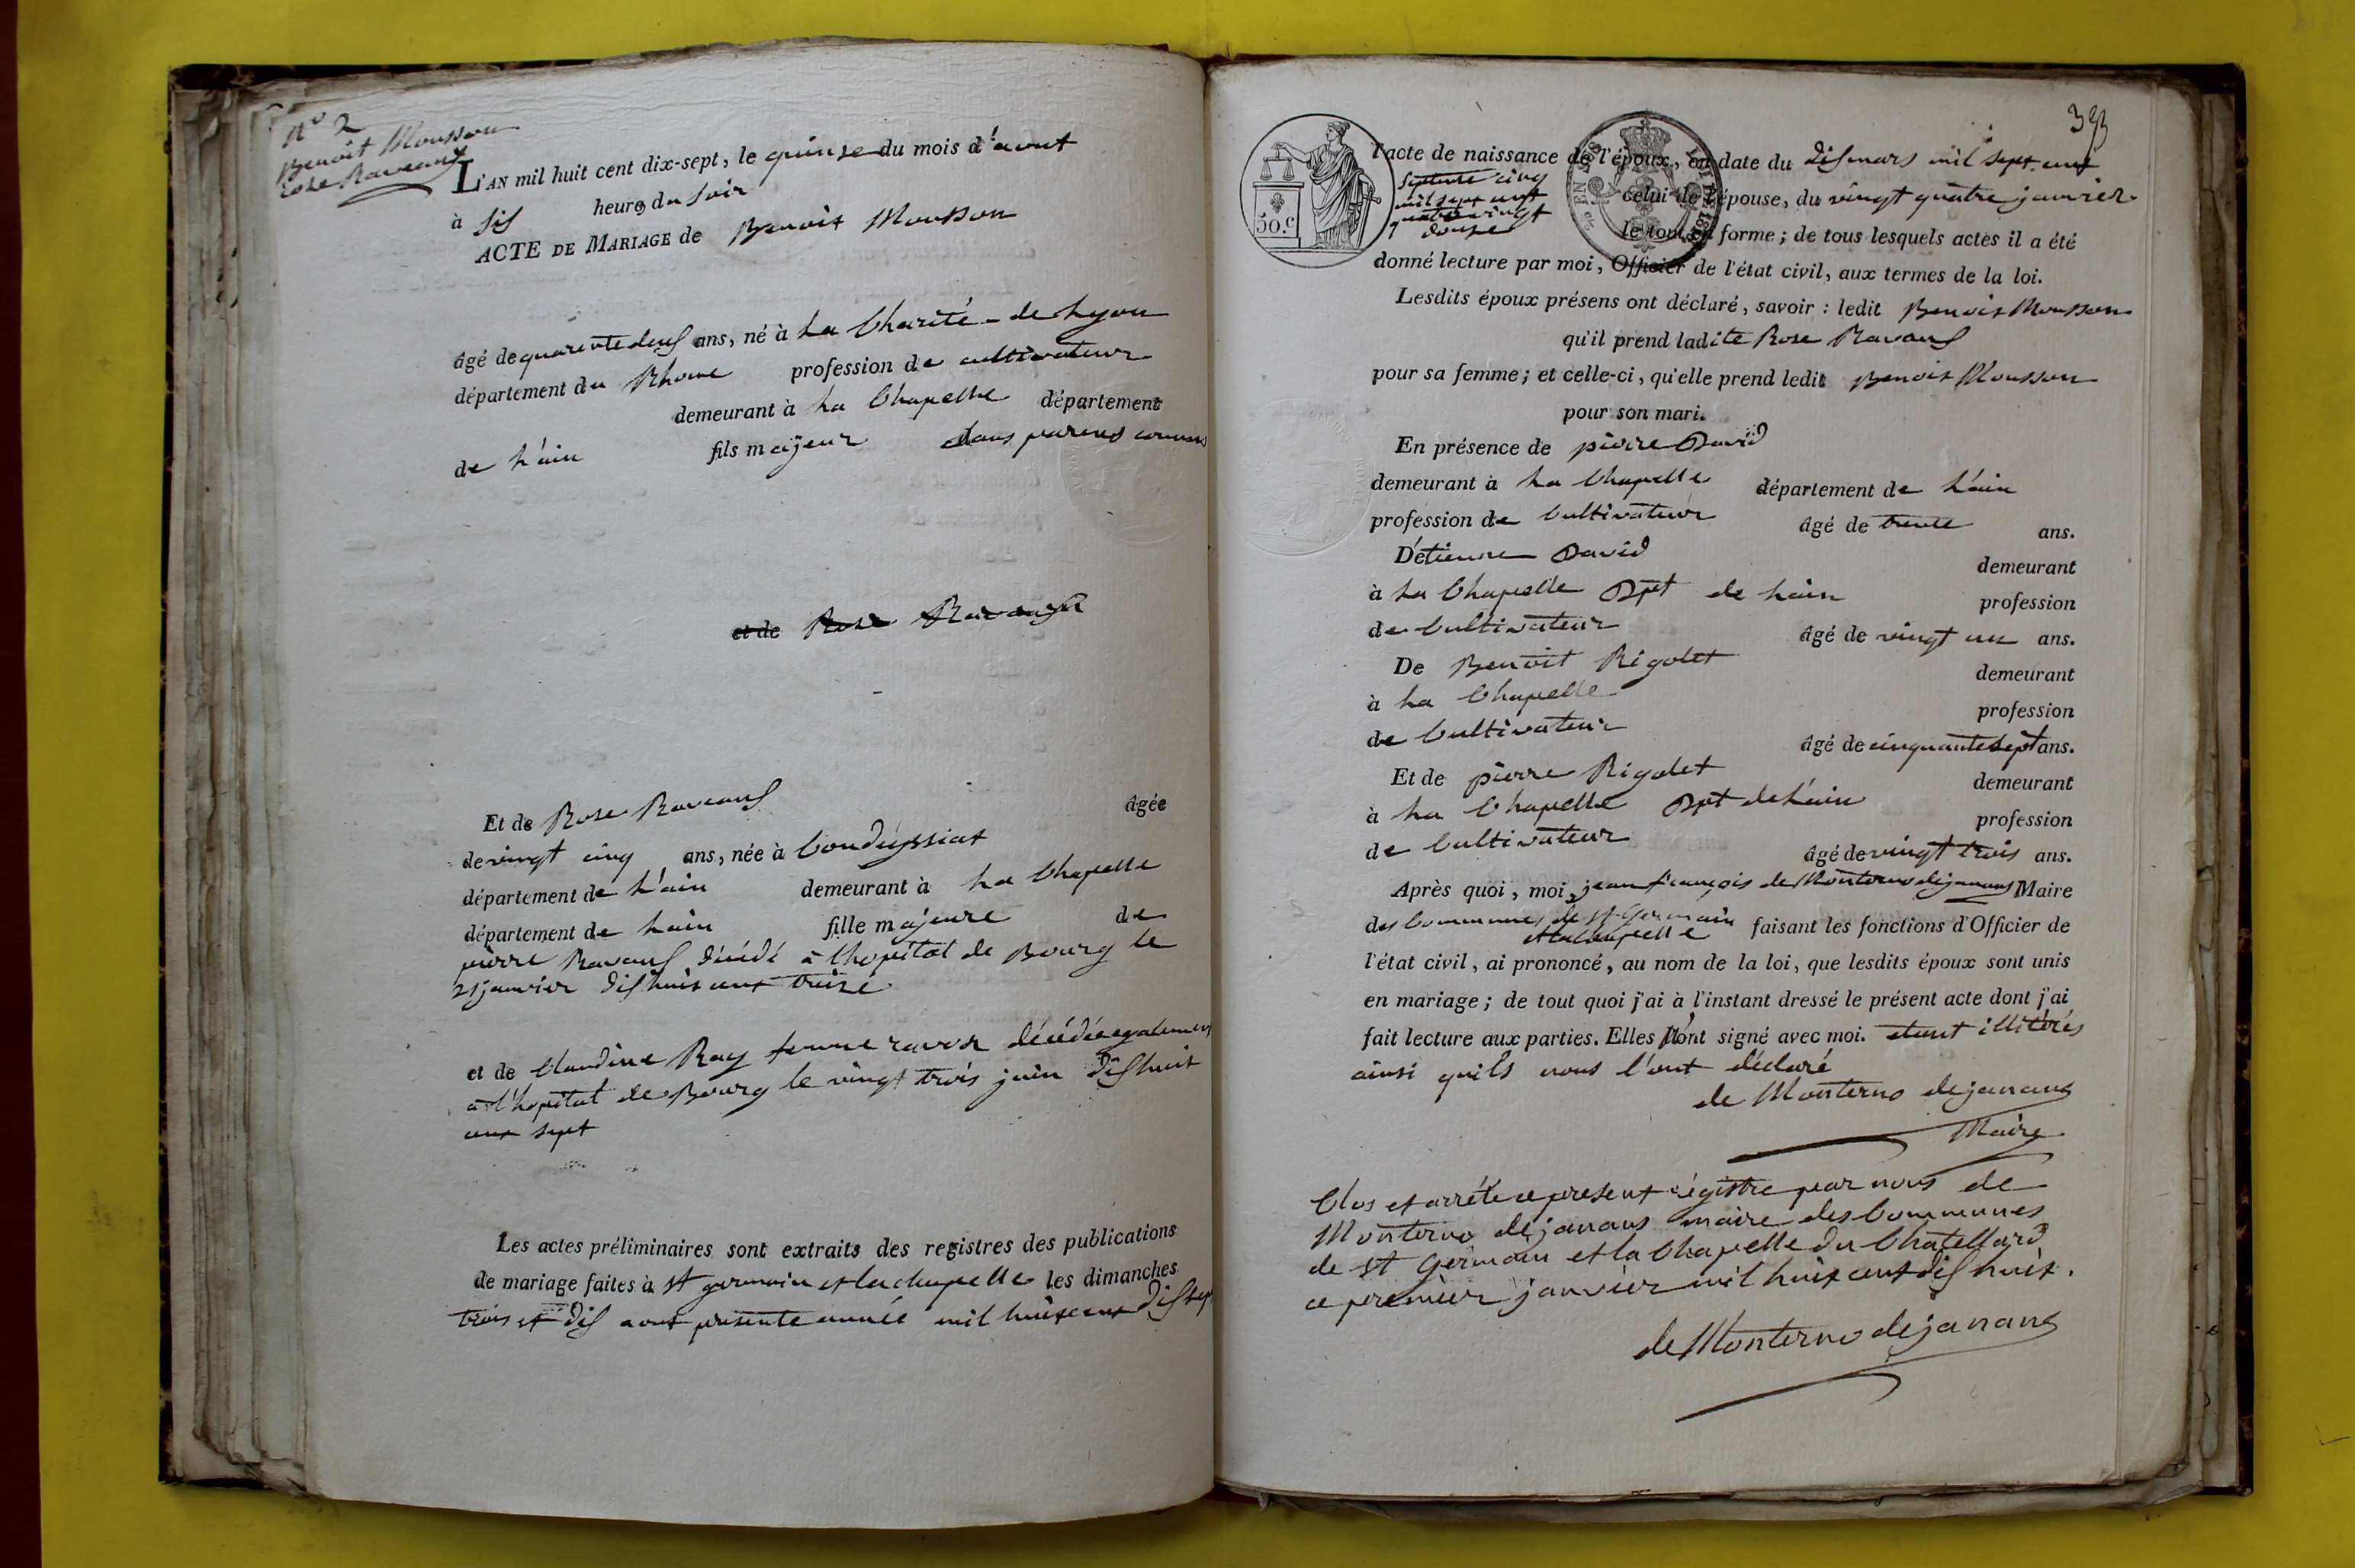 N° 2
Benoit Mousson
Rose Ravaux
L'AN mil huit cent dix-sept, le quinze du mois d'aout
à sis heures du soir
ACTE DE MARIAGE de Benoit Mousson
âgé de quarente deux ans, né à La Charité de Lyon
département du Rhone profession de cultivateur
demeurant à La Chapelle département
de L'ain fils majeur sans parens connus
et de Rose Ravaux
Et de Rose Ravaux âgée
de vingt cinq ans, née à Condeyssiat
département de L'ain demeurant à La Chapelle
département de Lain fille majeure de
pierre Ravaux décédé à lhopital de Bourg le
21 janvier dix huit cent treize
et de Claudine Ray femme ravox décédée egalement
à l'hopital de Bourg le vingt trois juin dix huit
cent sept
Les actes préliminaires sont extraits des registres des publications
de mariage faites à St germain et la chapelle les dimanches
trois et dix aout presente année mil huit cent dix sept
50.c
l'acte de naissance de l'époux, en date du dix mars mil sept cent
septente cinq celui de l'épouse, du vingt quatre janvier
mil sept cent
quatre vingt
douze le tout en forme; de tous lesquels actes il a été
donné lecture par moi, Officier de l'état civil, aux termes de la loi.
Lesdits époux présens ont déclaré, savoir: ledit Benoit Mousson
qu'il prend ladite Rose Ravaux
pour sa femme; et celle-ci, qu'elle prend ledit Benoit Mousson
pour son mari.
En présence de pierre David
demeurant à La Chapelle département de L'ain
profession de Cultivateur âgé de trente ans.
D'étienne David demeurant
à La Chapelle Dpt de Lain profession
de Cultivateur âgé de vingt un ans.
De Benoit Rigolet demeurant
à La Chapelle profession
de Cultivateur âgé de cinquante sept ans.
Et de pierre Rigolet demeurant
à La Chapelle Dpt de L'ain profession
de Cultivateur âgé de vingt trois ans.
Après quoi, moi, jean françois de Monterno dejanans Maire
des Communes de St Germain
et la chapelle faisant les fonctions d'Officier de
l'état civil, ai prononcé, au nom de la loi, que lesdits époux sont unis
en mariage; de tout quoi j'ai à l'instant dressé le présent acte dont j'ai
fait lecture aux parties. Elles n'ont signé avec moi. etant illitérés
ainsi quils nous l'ont déclaré
de Monterno dejanans
Maire
Clos et arrété ce present régistre par nous de
Monterno dejanans maire des Communes
de St Germain et la Chapelle du Chatellard
ce premier janvier mil huit cent dix huit.
de Monterno dejanans